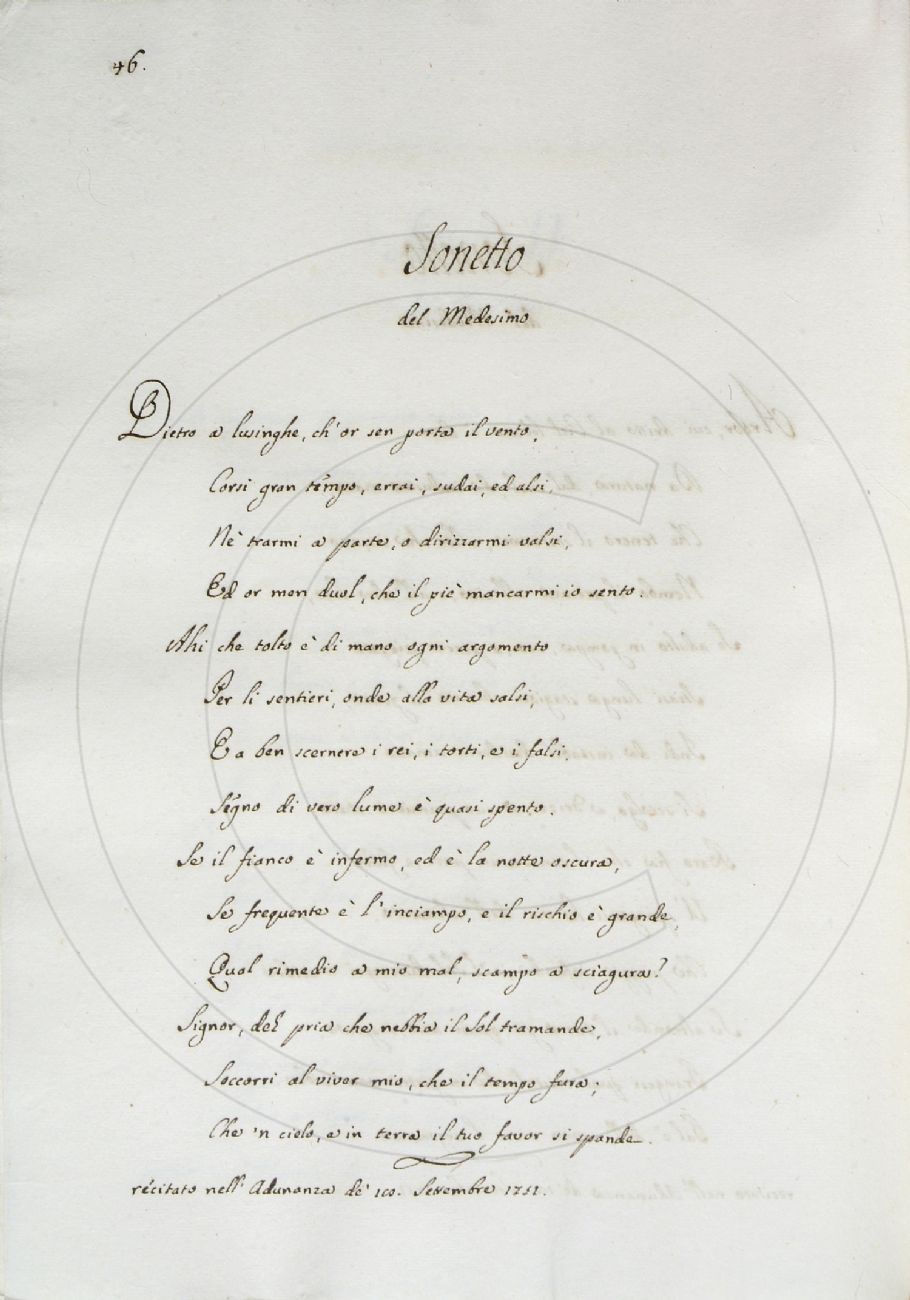 46.
Sonetto
del Medesimo
Dietro a lusinghe, ch'or sen porta il vento,
Corsi gran tempo, errai, sudai, ed alsi,
Nè trarmi a parte, o dirizzarmi valsi,
Ed or men duol, che il piè mancarmi io sento.
Ahi che tolto è di mano ogni argomento
Per li sentieri, onde alla vita salsi,
E a ben scernere i rei, i torti, e i falsi,
Segno di vero lume è quasi spento.
Se il fianco è infermo, ed è la notte oscura,
Se frequente è l'inciampo, e il rischio è grande,
Qual rimedio a mio mal, scampo a sciagura?
Signor, deh pria che nebbia il Sol tramande,
Soccorri al viver mio, che il tempo fura;
Che 'n cielo, e in terra il tuo favor si spande.
recitato nell' Adunanza de' Settembre